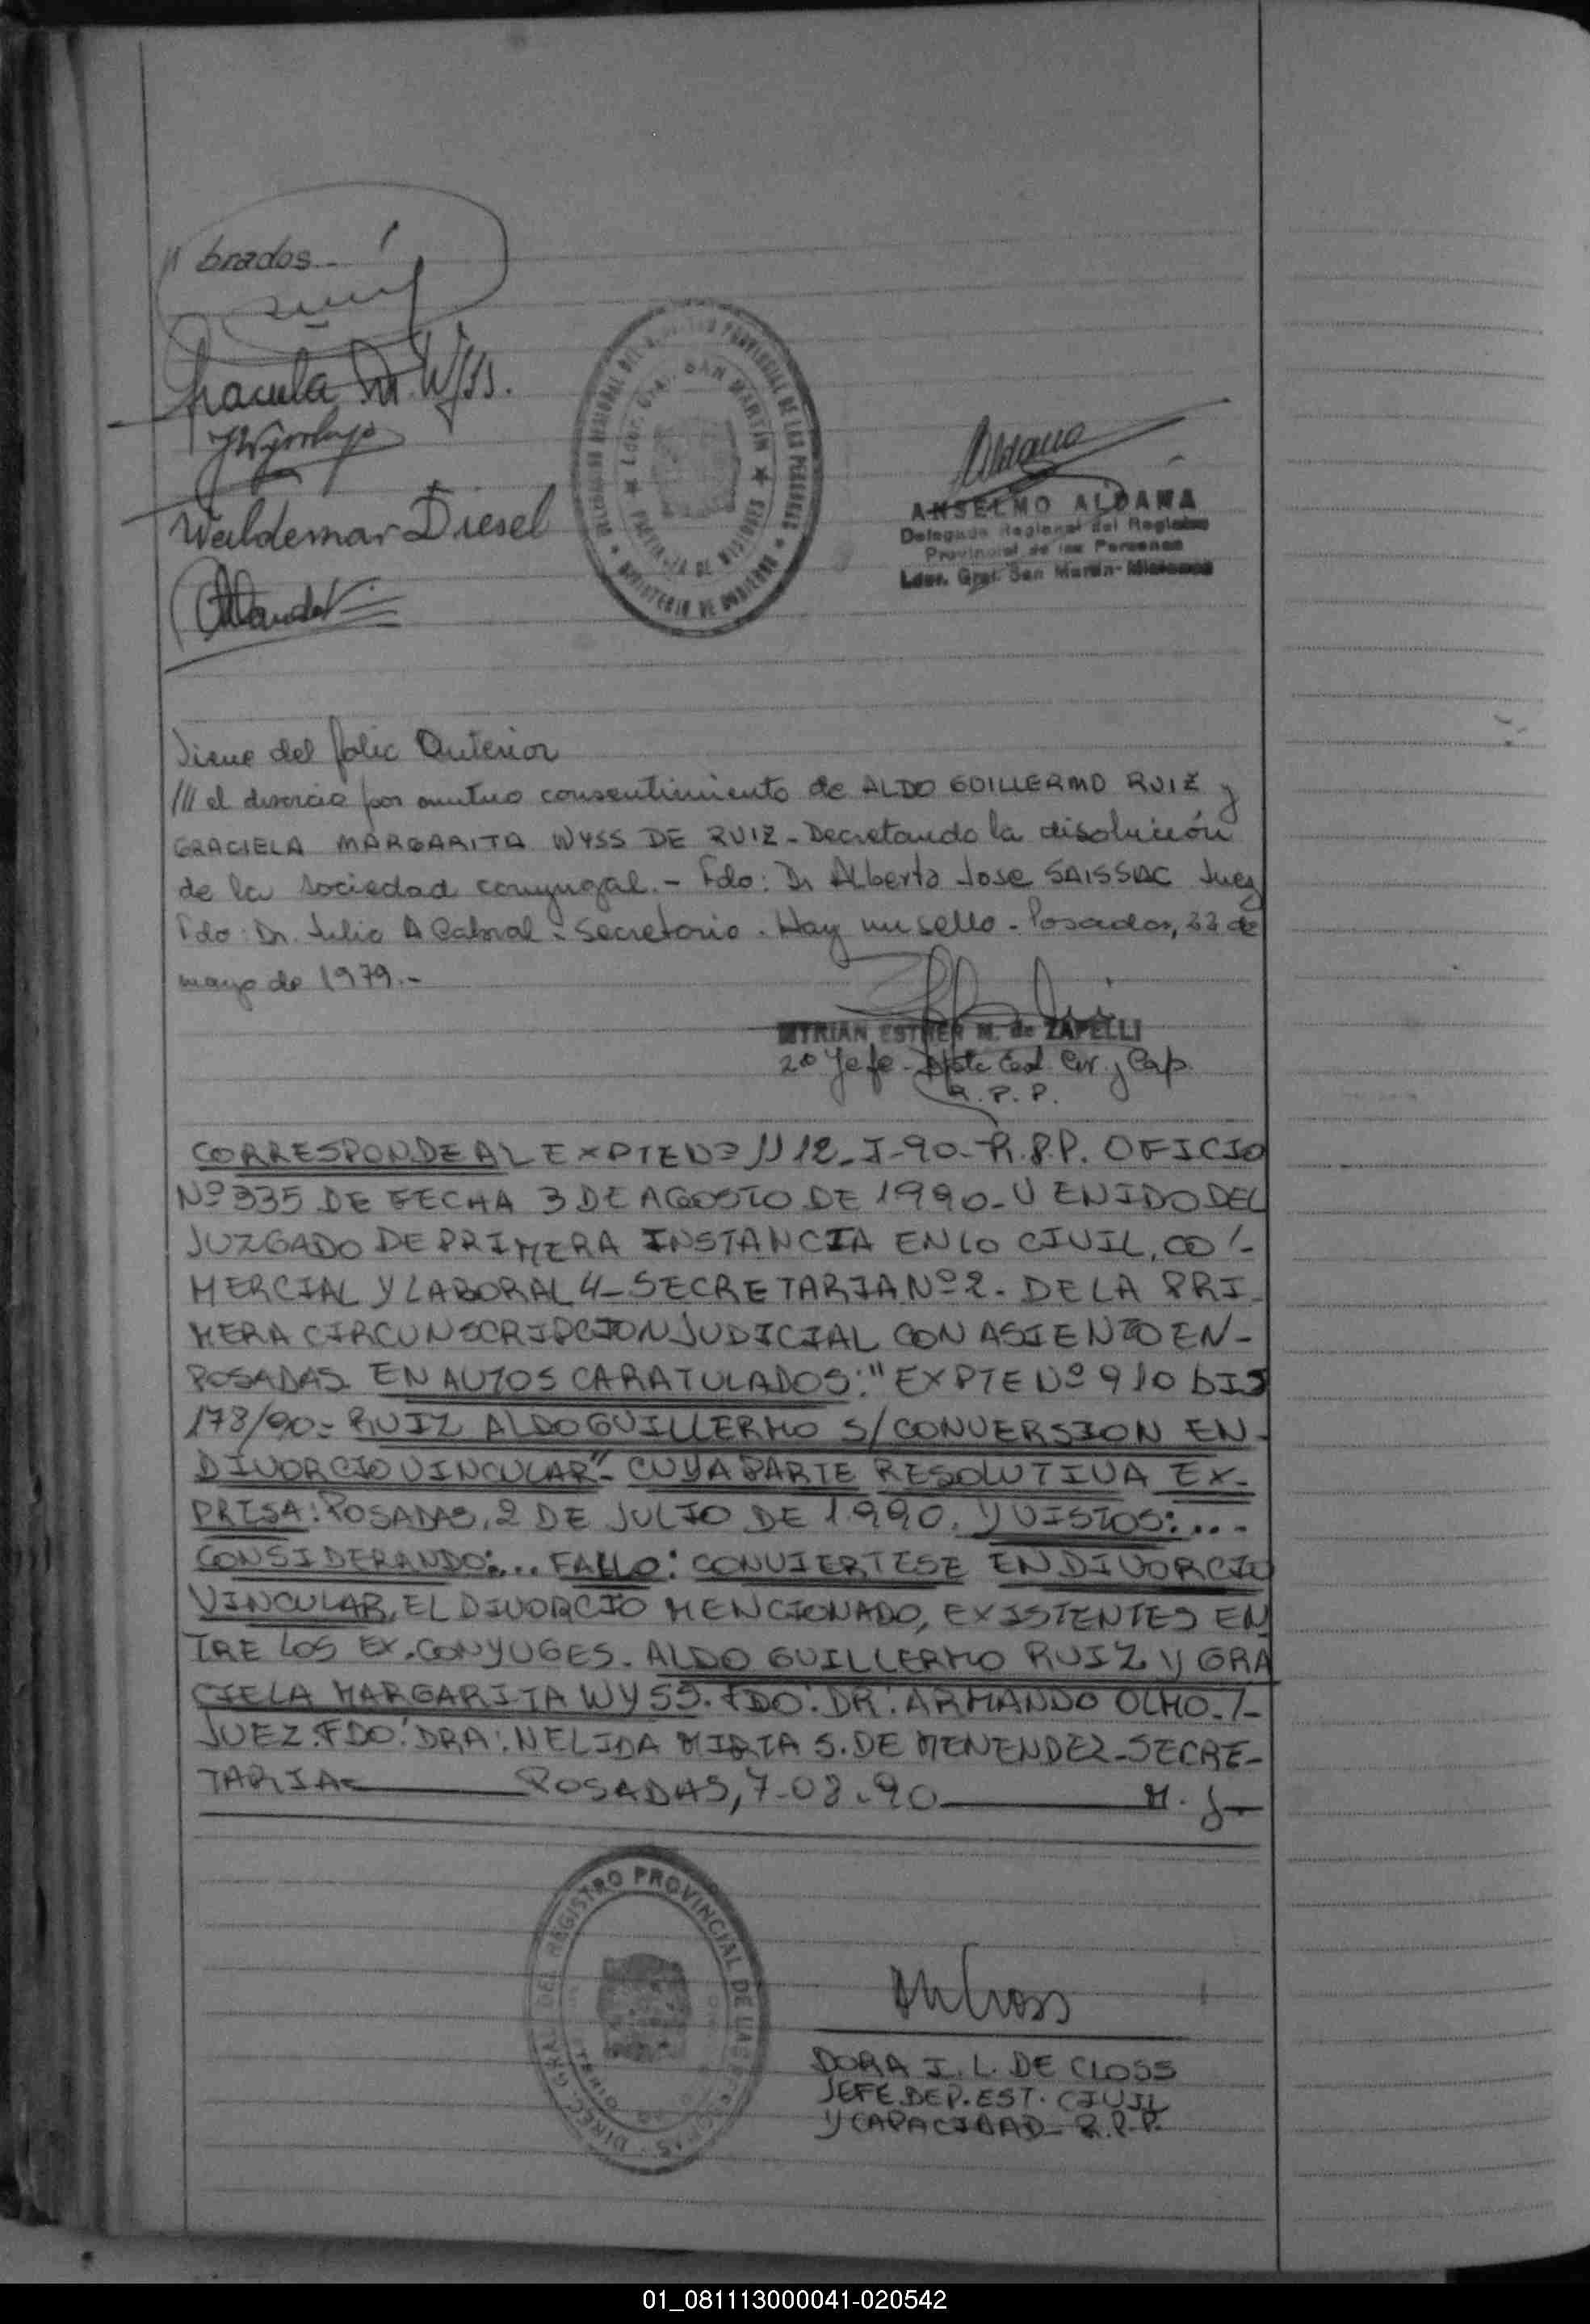 brados.-
Graciela M. Wyss.
Waldemar Diesel
Aldana
ANSELMO ALDANA
Delegado Regional del Registro
Provincial de las Personas
Ldor. Gral. San Martin - Misiones
PROVINCIAL DE LAS PERSONAS
Ldor. Gral. SAN MARTIN
PROVINCIA DE MISIONES
MINISTERIO DE GOBIERNO
Viene del folio Anterior
/// el divorcio por mutuo consentimiento de ALDO GUILLERMO RUIZ y
GRACIELA MARGARITA WYSS DE RUIZ - Decretando la disolución
de la sociedad conyugal. - Fdo: Dr Alberto Jose SAISSAC Juez
Fdo: Dr. Julio A Cabral - Secretario. Hay un sello - Posadas, 22 de
mayo de 1979.-
MYRIAN ESTHER M. de ZAPELLI
2º Jefe - Dpto Est. Civ. y Cap.
R. P. P.
CORRESPONDE AL EXPTE Nº 1112-I-90-R.P.P. OFICIO
Nº 335 DE FECHA 3 DE AGOSTO DE 1990- VENIDO DEL
JUZGADO DE PRIMERA INSTANCIA EN LO CIVIL, CO/-
MERCIAL Y LABORAL 4- SECRETARIA Nº 2- DE LA PRI-
MERA CIRCUNSCRIPCION JUDICIAL CON ASIENTO EN-
POSADAS EN AUTOS CARATULADOS: "EXPTE Nº 910 BIS
178/90= RUIZ ALDO GUILLERMO S/CONVERSION EN-
DIVORCIO VINCULAR"- CUYA PARTE RESOLUTIVA EX-
PRESA: POSADAS, 2 DE JULIO DE 1.990. Y VISTOS:...-
CONSIDERANDO:... FALLO: CONVIERTESE EN DIVORCIO
VINCULAR, EL DIVORCIO MENCIONADO, EXISTENTES EN
TRE LOS EX.CONYUGES. ALDO GUILLERMO RUIZ Y GRA
CIELA MARGARITA WYSS. FDO: DR: ARMANDO OLMO./-
JUEZ. FDO: DRA: NELIDA MIRTA S. DE MENENDEZ-SECRE-
TARIA= POSADAS, 7-08-90 M. J-
DIREC. GRAL. DEL REGISTRO PROVINCIAL DE LAS PERSONAS
DORA I. L. DE CLOSS
JEFE.DEP.EST. CIVIL
Y CAPACIDAD- R.P.P.
01_081113000041-020542